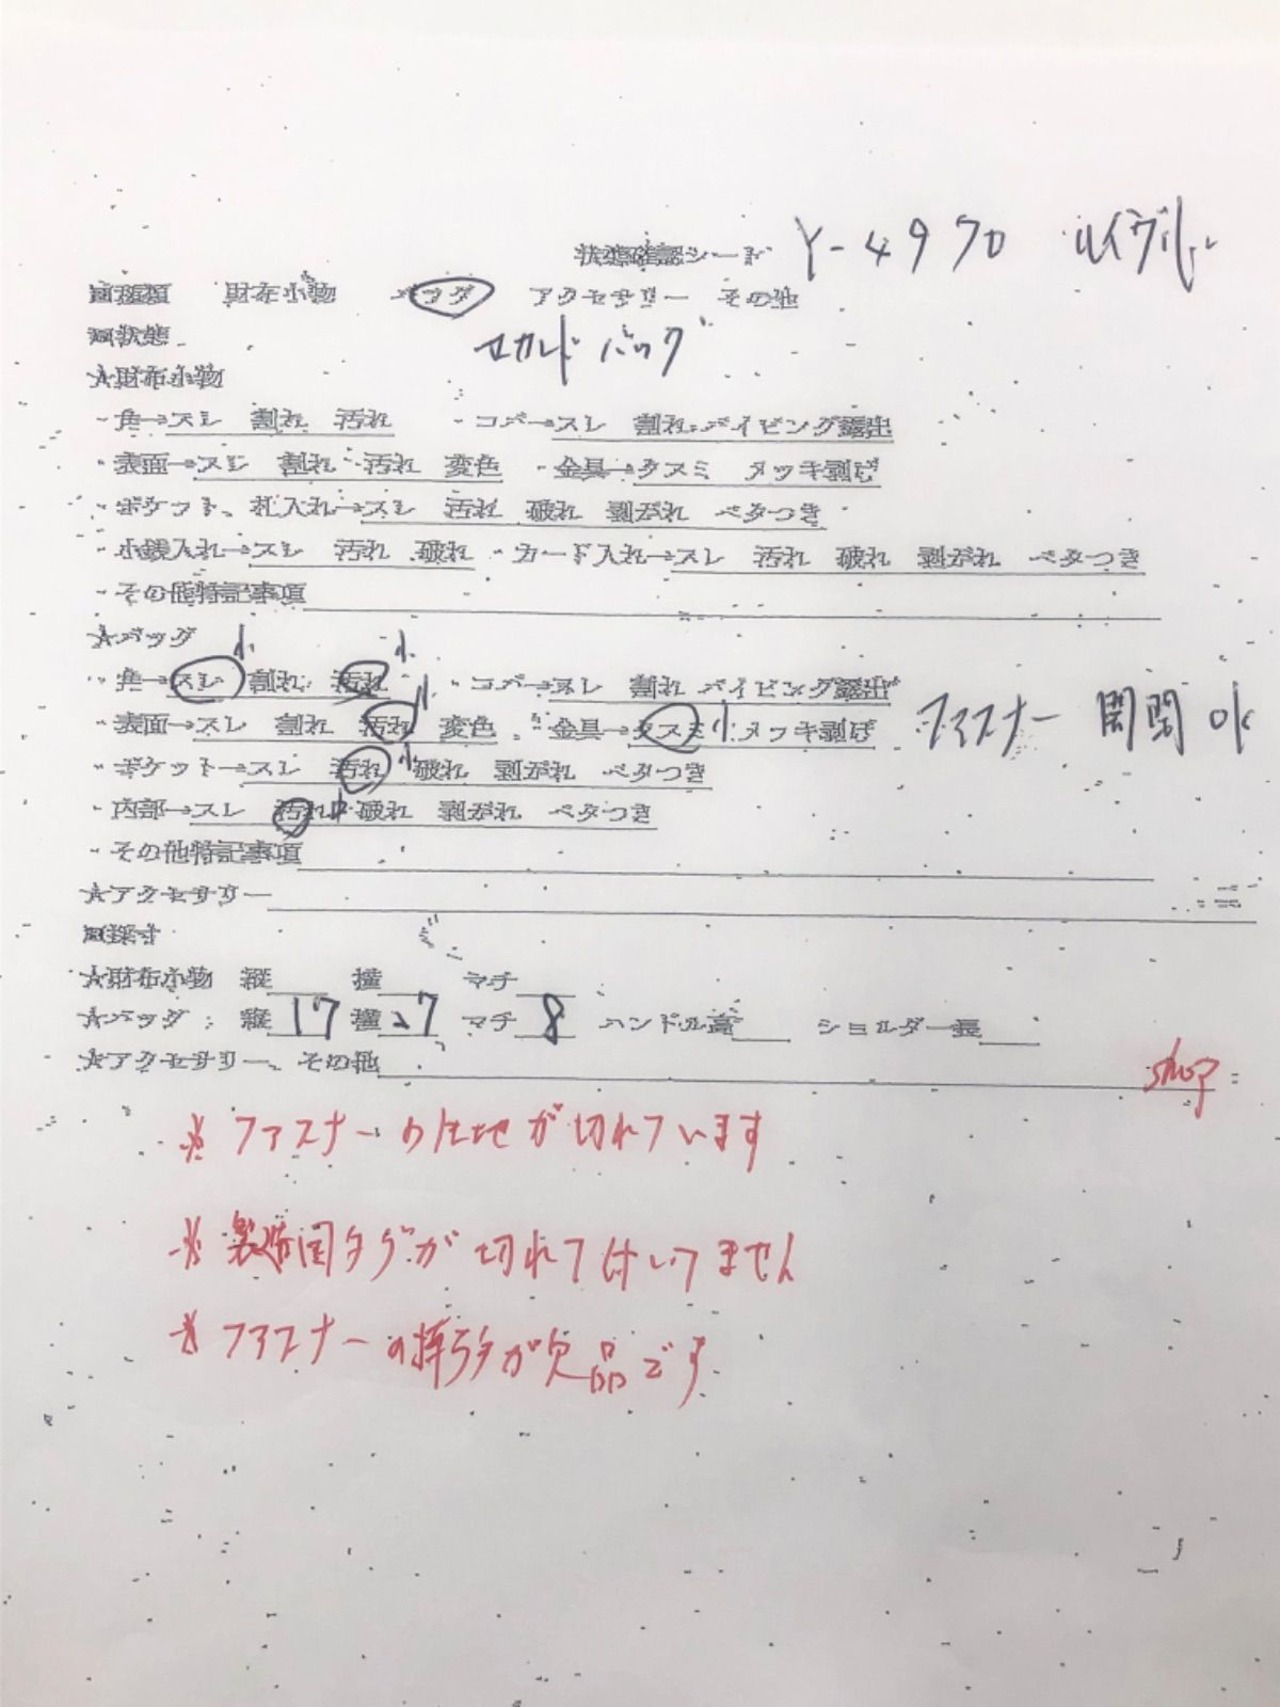 状態確認シート Y-4970 ルイヴィトン
■種類 財布小物 バッグ アクセサリー その他
■状態 セカンドバッグ
★財布小物
・角→スレ 割れ 汚れ ・コバ→スレ 割れ パイピング露出
・表面→スレ 割れ 汚れ 変色 ・金具→クスミ メッキ剥げ
・ポケット、札入れ→スレ 汚れ 破れ 剥がれ ベタつき
・小銭入れ→スレ 汚れ 破れ ・カード入れ→スレ 汚れ 破れ 剥がれ ベタつき
・その他特記事項
★バッグ
・角→スレ 小 割れ 汚れ 小 ・コバ→スレ 割れ パイピング露出
・表面→スレ 割れ 汚れ 小 変色 ・金具→クスミ 小 メッキ剥げ ファスナー 開閉 OK
・ポケット→スレ 汚れ 小 破れ 剥がれ ベタつき
・内部→スレ 汚れ 破れ 剥がれ ベタつき
・その他特記事項
★アクセサリー
■採寸
★財布小物 縦 横 マチ
★バッグ 縦 17 横 27 マチ 8 ハンドル高 ショルダー長
★アクセサリー、その他
shop
※ ファスナーの生地が切れています
※ 製造国タグが切れて付いてません
※ ファスナーの持ち手が欠品です